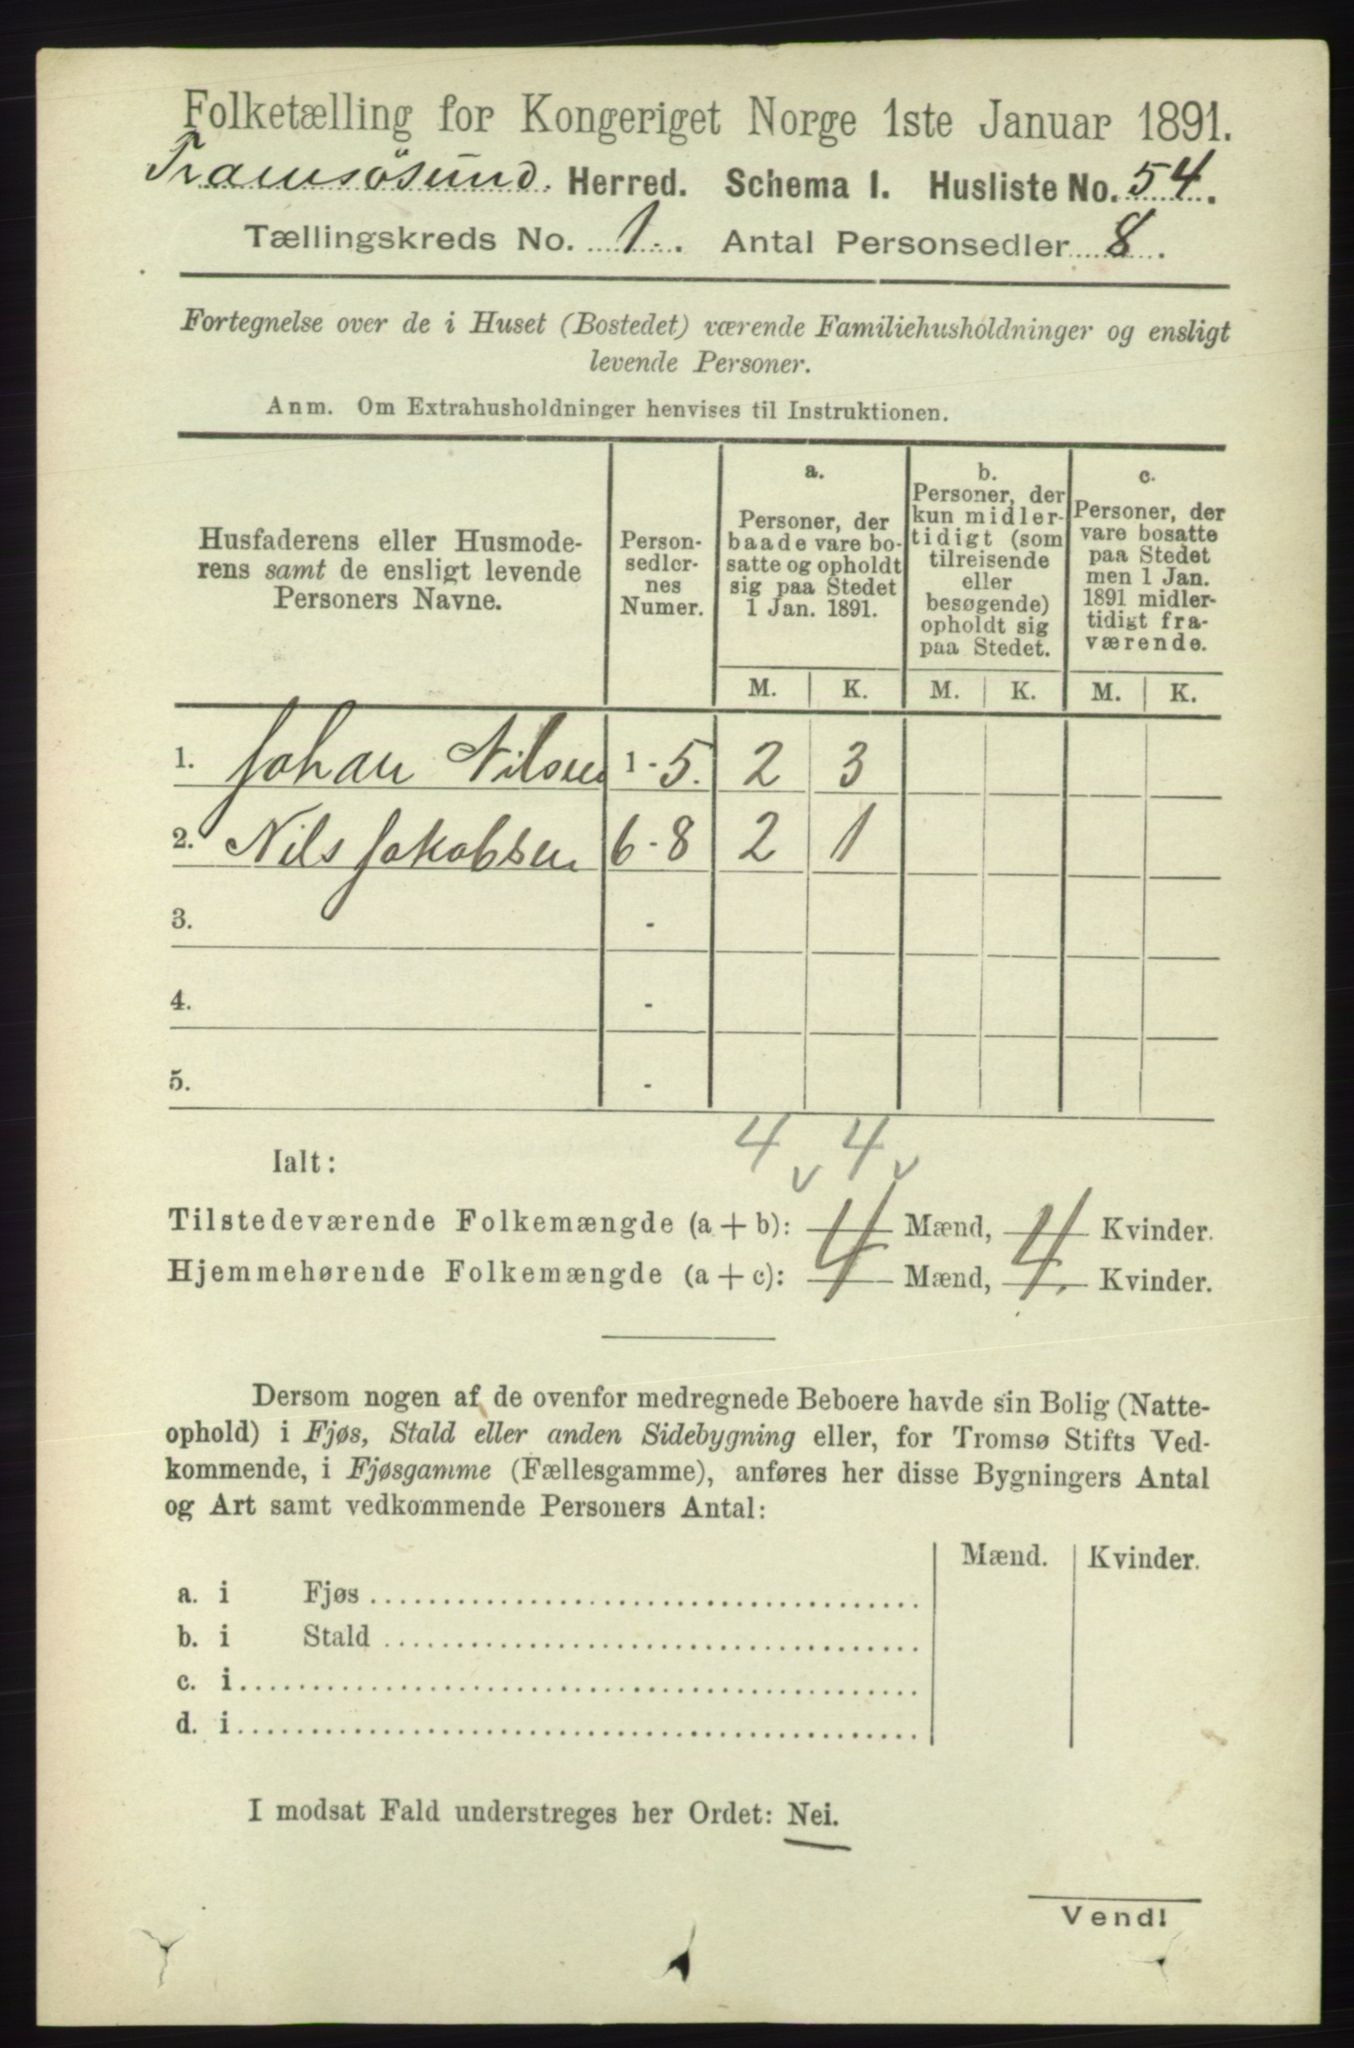 Folketælling for Kongeriget Norge 1ste Januar 1891.
Tromsøsund Herred. Schema I. Husliste No. 54.
Tællingskreds No. 1. Antal Personsedler 8.
Fortegnelse over de i Huset (Bostedet) værende Familiehusholdninger og ensligt
levende Personer.
Anm. Om Extrahusholdninger henvises til Instruktionen.
Husfaderens eller Husmode-
rens samt de ensligt levende
Personers Navne.
Person-
sedler-
nes
Numer.
a.
Personer, der
baade vare bo-
satte og opholdt
sig paa Stedet
1 Jan. 1891.
b.
Personer, der
kun midler-
tidigt (som
tilreisende
eller
besøgende)
opholdt sig
paa Stedet.
c.
Personer, der
vare bosatte
paa Stedet
men 1 Jan.
1891 midler-
tidigt fra-
værende.
M. K. M. K. M. K.
1. Johan Nilsen 1-5. 2 3
2. Nils Jakobsen 6-8 2 1
3. -
4. -
5. -
4 v 4 v
Ialt:
Tilstedeværende Folkemængde (a + b): 4 Mænd, 4 Kvinder.
Hjemmehørende Folkemængde (a + c): 4 Mænd, 4. Kvinder.
Dersom nogen af de ovenfor medregnede Beboere havde sin Bolig (Natte-
ophold) i Fjøs, Stald eller anden Sidebygning eller, for Tromsø Stifts Ved-
kommende, i Fjøsgamme (Fællesgamme), anføres her disse Bygningers Antal
og Art samt vedkommende Personers Antal:
Mænd. Kvinder.
a. i Fjøs
b. i Stald
c. i
d. i
I modsat Fald understreges her Ordet: Nei.
Vend!